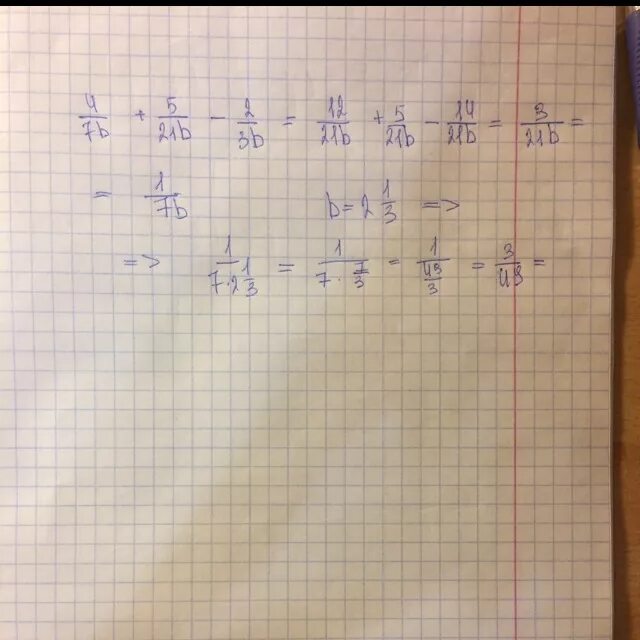 4/7b + 5/21b - 2/3b = 12/21b + 5/21b - 14/21b = 3/21b =
= 1/7b b = 2 1/3 =>
=> 1/(7·2 1/3) = 1/(7·7/3) = 1/(49/3) = 3/49 =